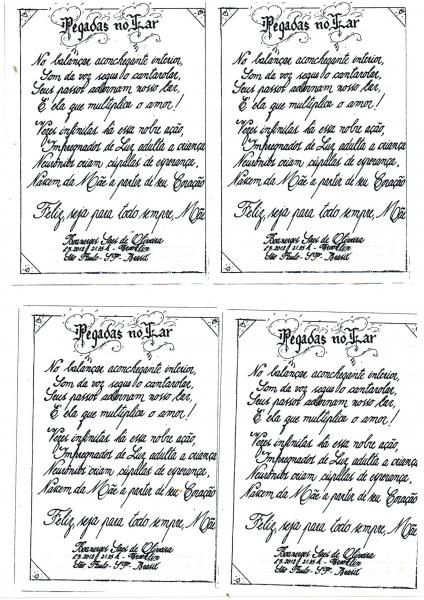 Pegadas no Lar
No balançar aconchegante interior,
Som da voz segundo cantarolar,
Seus passos adornam nosso lar,
E ela que multiplica o amor!
Vezes infinitas há essa nobre ação,
Impregnados de Luz adulta a criança
Neurônios criam cúpulas de esperança,
Nascem da Mãe a partir de seu Coração
Feliz, seja para todo sempre, Mãe
de Oliveira
São Paulo - SP - Brasil
Pegadas no Lar
No balançar aconchegante interior,
Som da voz segundo cantarolar,
Seus passos adornam nosso lar,
E ela que multiplica o amor!
Vezes infinitas há essa nobre ação,
Impregnados de Luz adulta a criança
Neurônios criam cúpulas de esperança,
Nascem da Mãe a partir de seu Coração
Feliz, seja para todo sempre, Mãe
de Oliveira
São Paulo - SP - Brasil
Pegadas no Lar
No balançar aconchegante interior,
Som da voz segundo cantarolar,
Seus passos adornam nosso lar,
E ela que multiplica o amor!
Vezes infinitas há essa nobre ação,
Impregnados de Luz adulta a criança
Neurônios criam cúpulas de esperança,
Nascem da Mãe a partir de seu Coração
Feliz, seja para todo sempre, Mãe
de Oliveira
São Paulo - SP - Brasil
Pegadas no Lar
No balançar aconchegante interior,
Som da voz segundo cantarolar,
Seus passos adornam nosso lar,
E ela que multiplica o amor!
Vezes infinitas há essa nobre ação,
Impregnados de Luz adulta a criança
Neurônios criam cúpulas de esperança,
Nascem da Mãe a partir de seu Coração
Feliz, seja para todo sempre, Mãe
de Oliveira
São Paulo - SP - Brasil